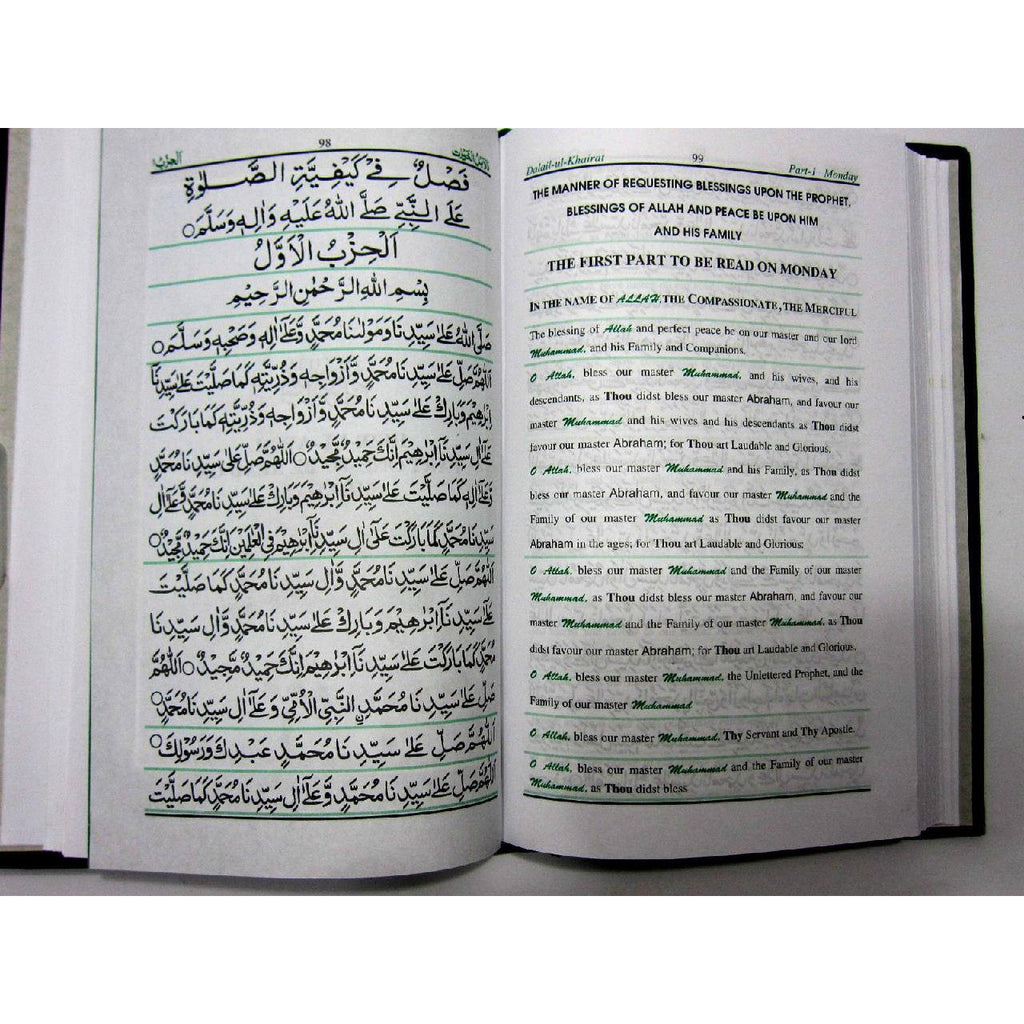 98
دلائل الخیرات
الحزب۱
فَصْلٌ فِيْ كَيْفِيَّةِ الصَّلٰوةِ
عَلَى النَّبِيِّ صَلَّى اللّٰهُ عَلَيْهِ وَاٰلِهٖ وَسَلَّمَ○
اَلْحِزْبُ الْاَوَّلُ
بِسْمِ اللّٰهِ الرَّحْمٰنِ الرَّحِيْمِ
صَلَّى اللّٰهُ عَلٰى سَيِّدِنَا وَمَوْلٰنَا مُحَمَّدٍ وَّعَلٰٓى اٰلِهٖ وَصَحْبِهٖ وَسَلَّمَ○
اَللّٰهُمَّ صَلِّ عَلٰى سَيِّدِنَا مُحَمَّدٍ وَّاَزْوَاجِهٖ وَذُرِّيَّتِهٖ كَمَا صَلَّيْتَ عَلٰى سَيِّدِنَآ
اِبْرٰهِيْمَ وَبَارِكْ عَلٰى سَيِّدِنَا مُحَمَّدٍ وَّاَزْوَاجِهٖ وَذُرِّيَّتِهٖ كَمَا بَارَكْتَ
عَلٰٓى اٰلِ سَيِّدِنَآ اِبْرٰهِيْمَ اِنَّكَ حَمِيْدٌ مَّجِيْدٌ○ اَللّٰهُمَّ صَلِّ عَلٰى سَيِّدِنَا مُحَمَّدٍ
وَّعَلٰٓى اٰلِهٖ كَمَا صَلَّيْتَ عَلٰى سَيِّدِنَآ اِبْرٰهِيْمَ وَبَارِكْ عَلٰى سَيِّدِنَا مُحَمَّدٍ وَّعَلٰٓى اٰلِ
سَيِّدِنَا مُحَمَّدٍ كَمَا بَارَكْتَ عَلٰٓى اٰلِ سَيِّدِنَآ اِبْرٰهِيْمَ فِي الْعٰلَمِيْنَ اِنَّكَ حَمِيْدٌ مَّجِيْدٌ○
اَللّٰهُمَّ صَلِّ عَلٰى سَيِّدِنَا مُحَمَّدٍ وَّاٰلِ سَيِّدِنَا مُحَمَّدٍ كَمَا صَلَّيْتَ
عَلٰى سَيِّدِنَآ اِبْرٰهِيْمَ وَبَارِكْ عَلٰى سَيِّدِنَا مُحَمَّدٍ وَّاٰلِ سَيِّدِنَا
مُحَمَّدٍ كَمَا بَارَكْتَ عَلٰى سَيِّدِنَآ اِبْرٰهِيْمَ اِنَّكَ حَمِيْدٌ مَّجِيْدٌ○ اَللّٰهُمَّ
صَلِّ عَلٰى سَيِّدِنَا مُحَمَّدِ ࣙالنَّبِيِّ الْاُمِّيِّ وَعَلٰٓى اٰلِ سَيِّدِنَا مُحَمَّدٍ○
اَللّٰهُمَّ صَلِّ عَلٰى سَيِّدِنَا مُحَمَّدٍ عَبْدِكَ وَرَسُوْلِكَ○
اَللّٰهُمَّ صَلِّ عَلٰى سَيِّدِنَا مُحَمَّدٍ وَّعَلٰٓى اٰلِ سَيِّدِنَا مُحَمَّدٍ كَمَا صَلَّيْتَ
Dalail-ul-Khairat 99 Part-i Monday
THE MANNER OF REQUESTING BLESSINGS UPON THE PROPHET,
BLESSINGS OF ALLAH AND PEACE BE UPON HIM
AND HIS FAMILY
THE FIRST PART TO BE READ ON MONDAY
IN THE NAME OF ALLAH, THE COMPASSIONATE, THE MERCIFUL
The blessing of Allah and perfect peace be on our master and our lord
Muhammad, and his Family and Companions.
O Allah, bless our master Muhammad, and his wives, and his
descendants, as Thou didst bless our master Abraham, and favour our
master Muhammad and his wives and his descendants as Thou didst
favour our master Abraham; for Thou art Laudable and Glorious.
O Allah, bless our master Muhammad and his Family, as Thou didst
bless our master Abraham, and favour our master Muhammad and the
Family of our master Muhammad as Thou didst favour our master
Abraham in the ages; for Thou art Laudable and Glorious:
O Allah, bless our master Muhammad and the Family of our master
Muhammad, as Thou didst bless our master Abraham, and favour our
master Muhammad and the Family of our master Muhammad, as Thou
didst favour our master Abraham; for Thou art Laudable and Glorious.
O Allah, bless our master Muhammad, the Unlettered Prophet, and the
Family of our master Muhammad
O Allah, bless our master Muhammad, Thy Servant and Thy Apostle.
O Allah, bless our master Muhammad and the Family of our master
Muhammad, as Thou didst bless